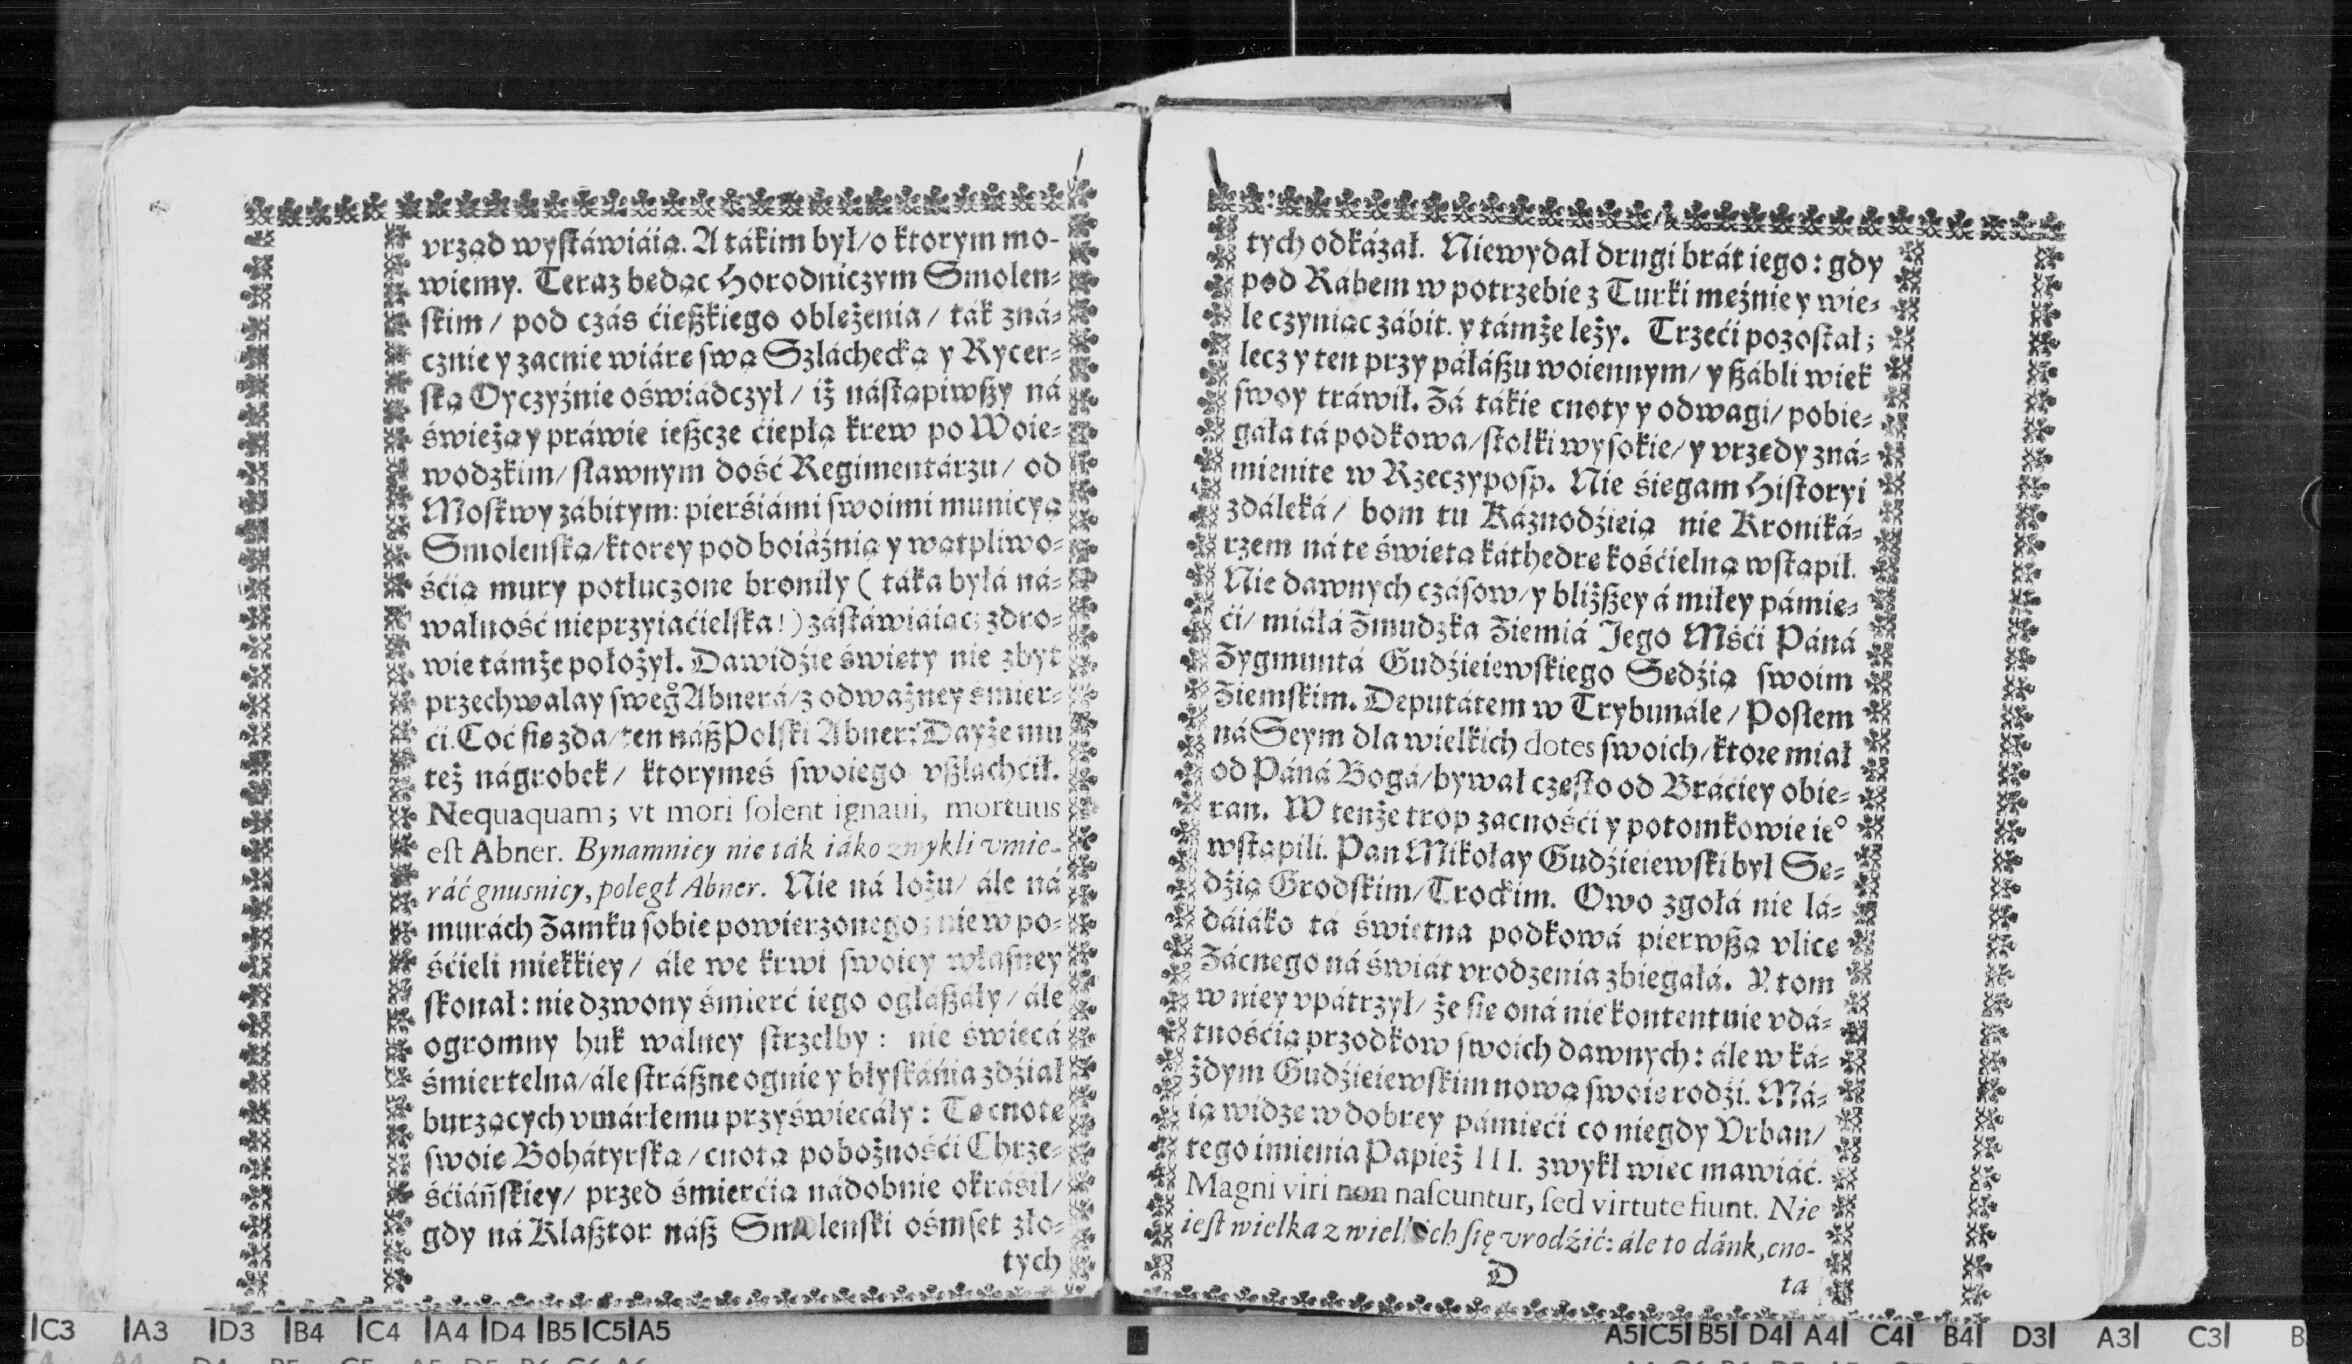 vrząd wyſtáwiáią. A tákim był/ o ktorym mo-
wiemy. Teraz bedąc Horodniczym Smolen-
ſkim/ pod czás ćięßkiego oblężenia/ ták zná-
cznie y zacnie wiáre ſwą Szláchecką y Rycer-
ſką Oyczyźnie oświádczył/ iż náſtąpiwßzy ná
świeżą y práwie ießcze ćiepłą krew po Woie-
wodzkim/ ſławnym dość Regimentárzu/ od
Moſkwy zábitym: pierśiámi ſwoimi municyą
Smolenſką/ ktorey pod boiáźnią y wątpliwo-
śćią mury potłuczone broniły ( táka byłá ná-
wałność nieprzyiaćielſka! ) záſtáwiáiąc; zdro-
wie támże położył. Dawidźie święty nie zbyt
przechwalay ſweg° Abnerá/ z odważney śmier-
ći. Coć ſie zda/ ten náß Polſki Abner? Dayże mu
też nágrobek/ ktorymeś ſwoiego vßláchćił.
Nequaquam; vt mori ſolent ignaui, mortuus
eſt Abner. Bynamniey nie ták iáko zwykli vmie-
ráć gnusnicy, poległ Abner. Nie ná łożu/ ále ná
murách Zamku ſobie powierzonego; nie w po-
śćieli miekkiey/ ále we krwi ſwoiey własney
ſkonał: nie dzwony śmierć iego ogłáßáły/ ále
ogromny huk walney ſtrzelby: nie świecá
śmiertelna/ ále ſtráßne ognie y błyſkánia zdźiał
burzących vmárłemu przyświecáły: Te cnote
ſwoie Bohátyrſką/ cnotą pobożnośći Chrze-
śćiáńſkiey/ przed śmierćią nádobnie okráśił/
gdy ná Klaßtor náß Smolenſki ośmſet zło-
tych
tych odkázał. Niewydał drugi brát iego: gdy
pod Rabem w potrzebie z Turki meżnie y wie-
le czyniąc zábit. y támże leży. Trzeći pozoſtał;
lecz y ten przy páłáßu woiennym/ y ßábli wiek
ſwoy tráwił. Zá takie cnoty y odwagi/ pobie-
gała tá podkowa/ ſtołki wyſokie/ y vrzędy zná-
mienite w Rzeczypoſp. Nie śiegam Hiſtoryi
zdáleká/ bom tu Káznodźieią nie Kroniká-
rzem ná te świetą káthedre kośćielną wſtąpił.
Nie dawnych czáſow/ y bliżßey á miłey pámie-
ći/ miáłá Zmudzka Ziemiá Jego Mśći Páná
Zygmuntá Gudźieiewſkiego Sedźią ſwoim
Ziemſkim. Deputátem w Trybunále/ Poſłem
ná Seym dla wielkich dotes ſwoich/ ktore miał
od Páná Bogá/ bywał cżeſto od Bráćiey obie-
ran. W tenże trop zacnośći y potomkowie ie°
wſtąpili. Pan Mikołay Gudźieiewſki był Se-
dźią Grodſkim/ Trockim. Owo zgołá nie lá-
dáiáko tá świetna podkowá pierwßą vlice
Zácnego ná świát vrodzenia zbiegáłá. Y tom
w niey vpátrzył/ że ſie oná nie kontentuie vdá-
tnośćią przodkow ſwoich dawnych: ále w ká-
żdym Gudźieiewſkim nową ſwoie rodźi. Má-
ią widze w dobrey pámieći co niegdy Vrban/
tego imienia Papież III. zwykł wiec mawiáć.
Magni viri non naſcuntur, ſed virtute fiunt. Nie
ieſt wielka z wielkich ſię vrodźić: ále to dánk, cno-
D
ta
C3 A3 D3 B4 C4 A4 D4 B5 C5 A5
A5 C5 B5 D4 A4 C4 B4 D3 A3 C3 B